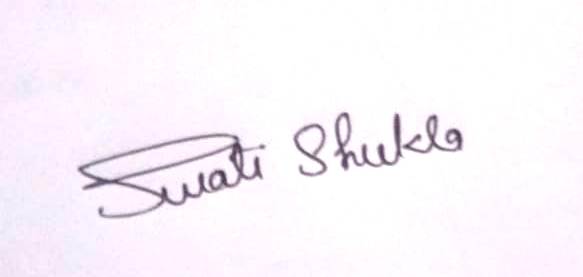 Swati Shukla